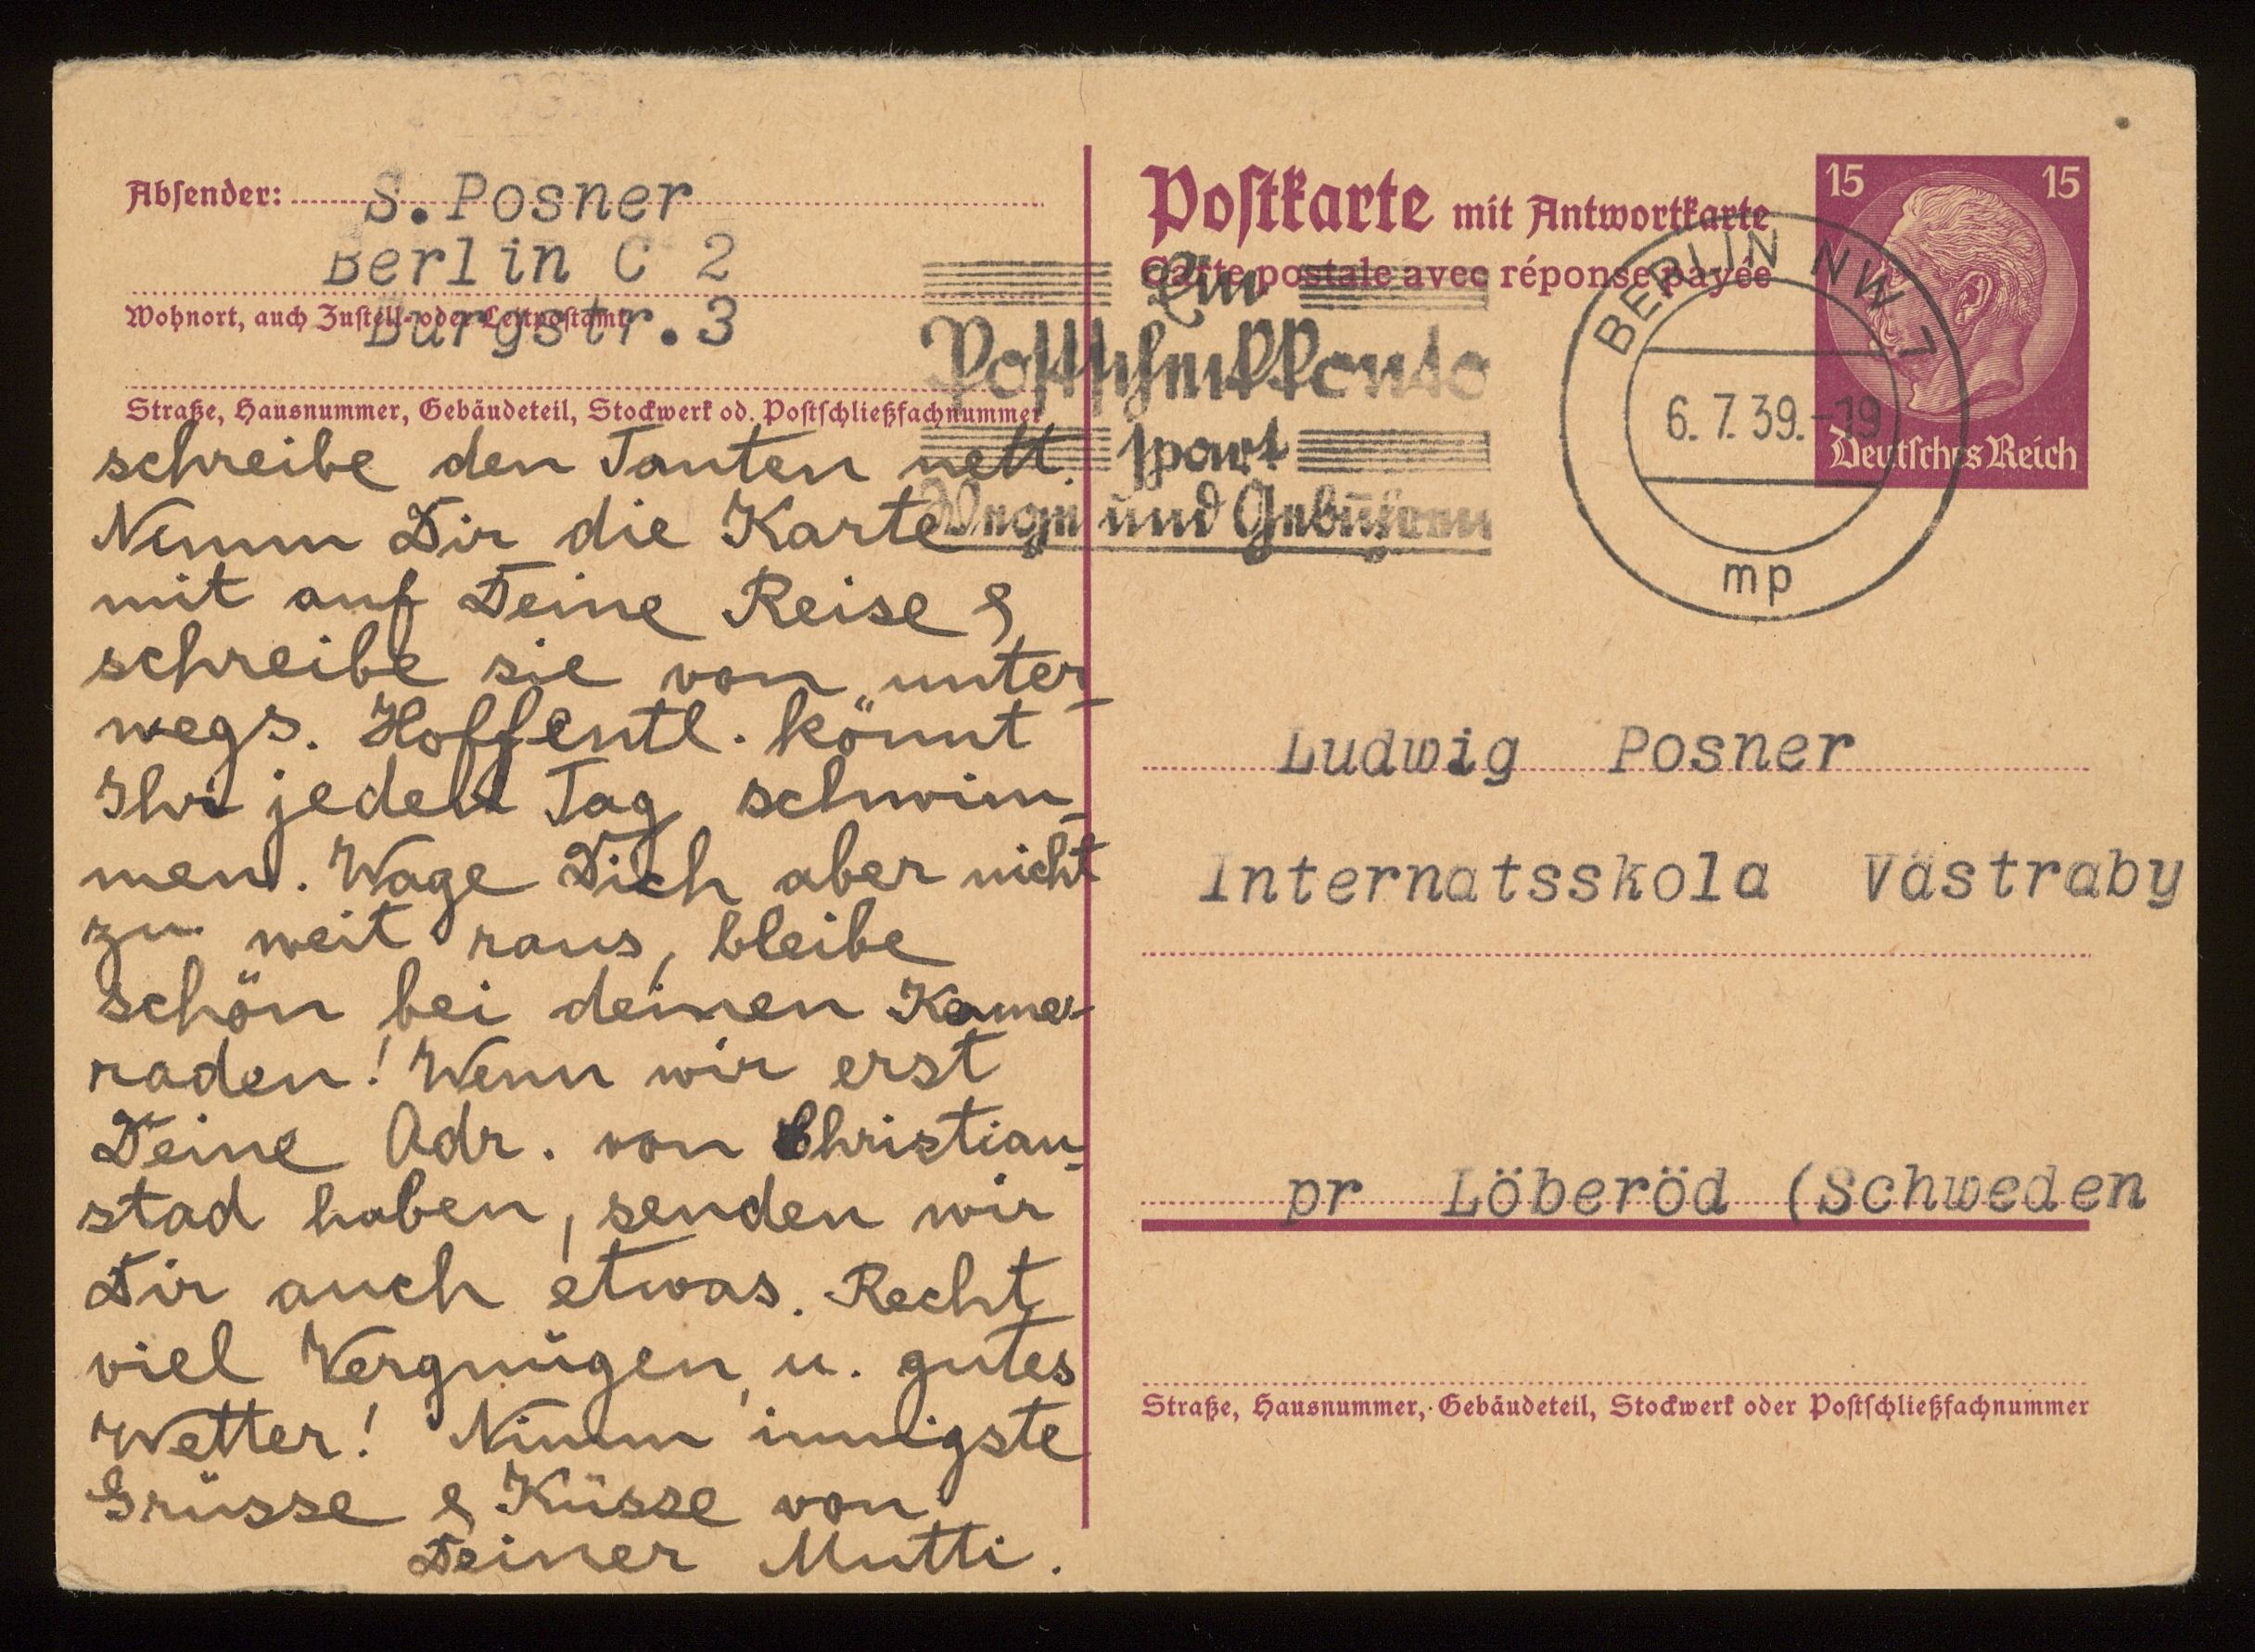 Absender: S. Posner
Berlin C 2
Wohnort, auch Zustell- oder Leitpostamt
Burgstr. 3
Straße, Hausnummer, Gebäudeteil, Stockwerk od. Postschließfachnummer
schreibe den Tanten nett.
Nimm Dir die Karte
mit auf Deine Reise &
schreibe sie von unter-
wegs. Hoffentl. könnt
Ihr jeden Tag schwim-
men. Wage Dich aber nicht
zu weit raus, bleibe
schön bei deinen Kame-
raden! Wenn wir erst
Deine Adr. von Christian-
stad haben, senden wir
Dir auch etwas. Recht
viel Vergnügen u. gutes
Wetter! Nimm innigste
Grüsse & Küsse von
Deiner Mutti.
Postkarte mit Antwortkarte
Carte postale avec réponse payée
15 15
Deutsches Reich
BERLIN NW 7
6.7.39.-19
mp
Ein
Postscheckkonto
spart
Wege und Gebühren
Ludwig Posner
Internatsskola Västraby
pr Löberöd (Schweden
Straße, Hausnummer, Gebäudeteil, Stockwerk oder Postschließfachnummer